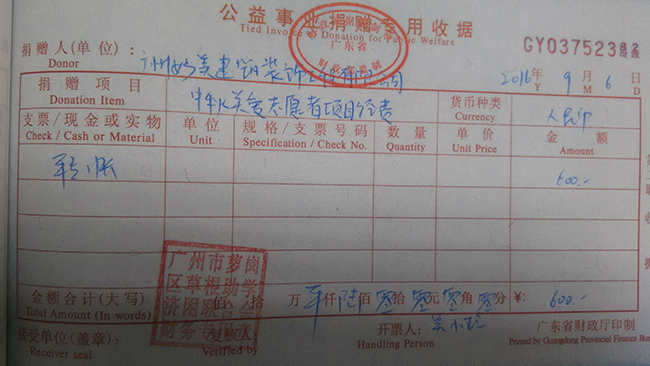 公益事业捐赠专用收据
Tied Invoice of Donation for Public Welfare
广东省
GY03752382
捐赠人(单位): 广州 美建 装饰 公司
Donor
2016年 9月 6日
Y M D
捐赠项目 关爱志愿者项目经费 货币种类 人民币
Donation Item Currency
支票/现金或实物 单位 规格/支票号码 数量 单价 金额
Check / Cash or Material Unit Specification / Check No. Quantity Unit Price Amount
转帐 600.-
广州市萝岗
区草根助学
济困联合会
财务专
金额合计(大写) 佰 拾 万 仟陆佰零拾零元零角零分 ¥: 600.-
Total Amount (In words)
接受单位(盖章): 复核人: 开票人: 小 广东省财政厅印制
Receiver seal Verified by Handling Person Printed by Guangdong Provincial Finance Bureau